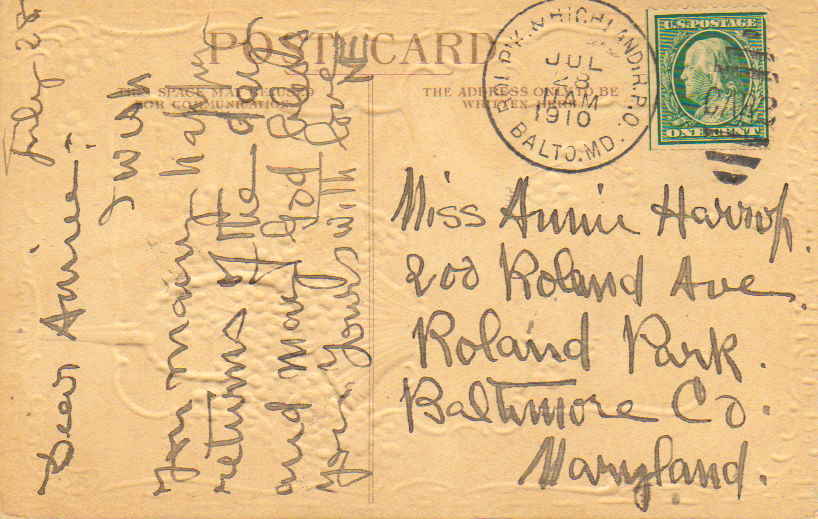 POST CARD
THIS SPACE MAY BE USED
FOR COMMUNICATION
THE ADDRESS ONLY TO BE
WRITTEN HERE
U.S. POSTAGE
ONE CENT
JUL
28
M
1910
BALTO. MD.
R.P.O.
July 28
Dear Annie:
I wish
you many happy
returns of the day
and may God bless
you. Yours with love
NE
Miss Annie Harrop.
200 Roland Ave.
Roland Park.
Baltimore Co.
Maryland.